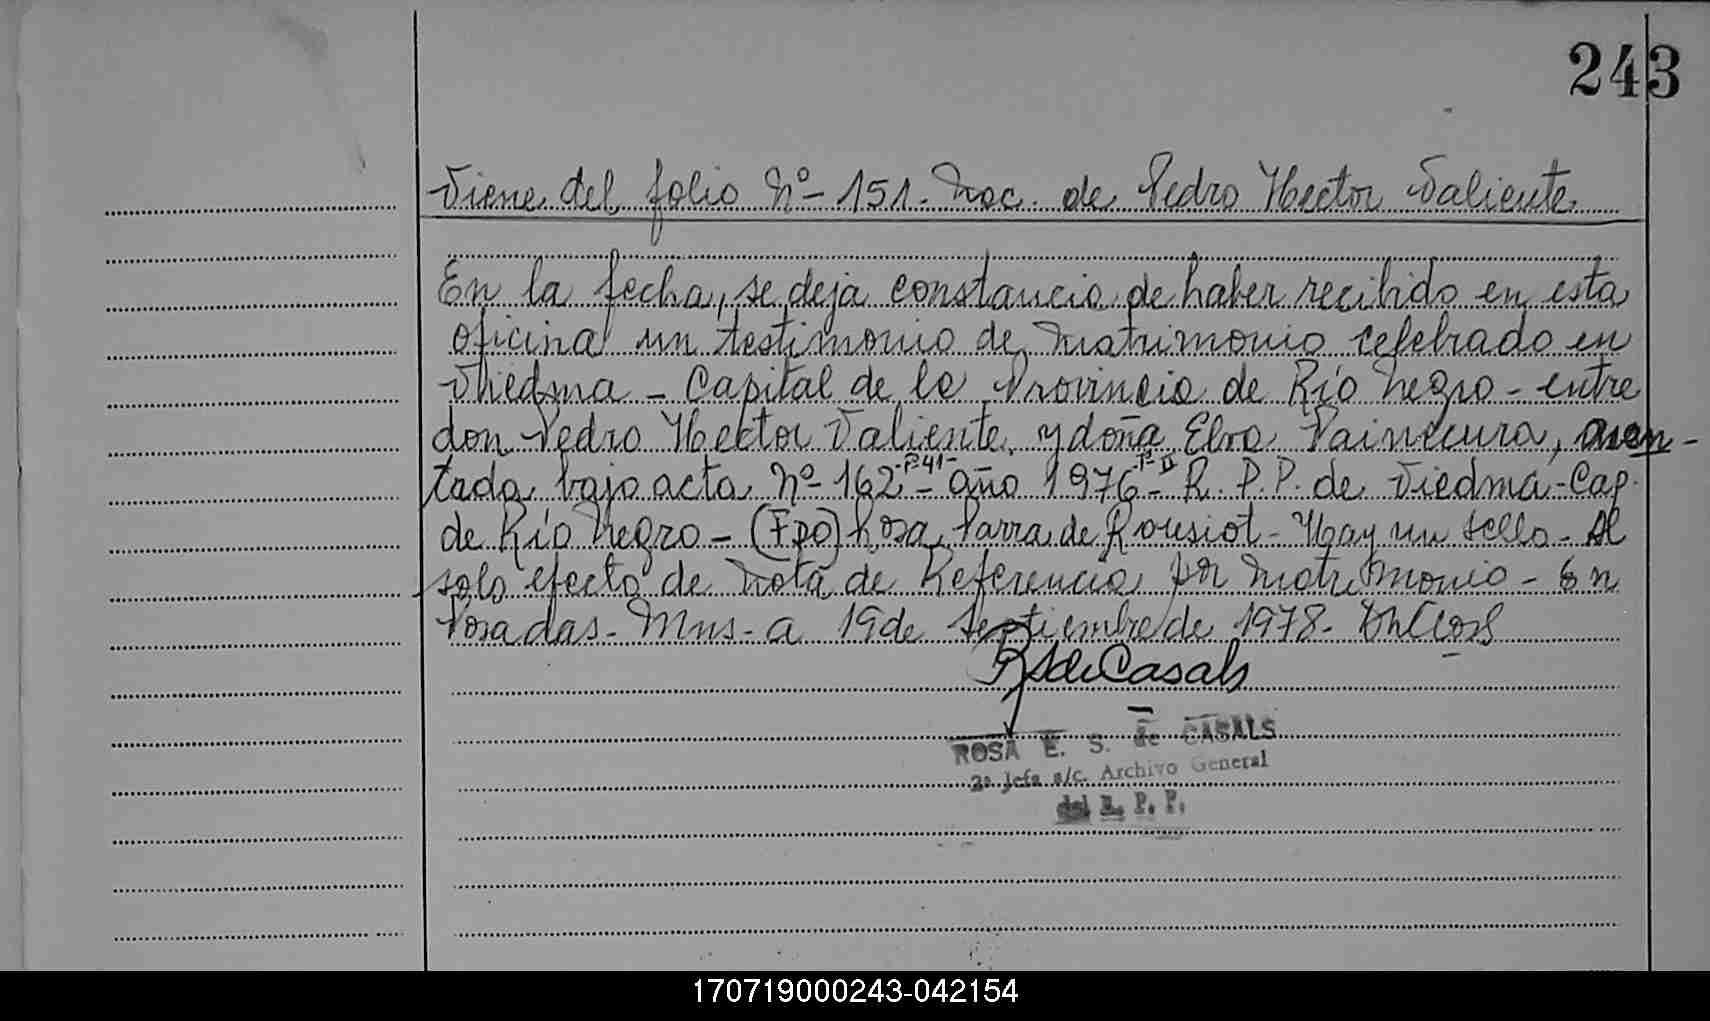 243
Viene del folio Nº- 151. Nac. de Pedro Hector Valiente
En la fecha, se deja constancia de haber recibido en esta
oficina un testimonio de Matrimonio celebrado en
Viedma - Capital de la Provincia de Río Negro - entre
don Pedro Hector Valiente, y doña Elva Painecura, asen-
tada bajo acta Nº- 162 -Fº 41- año 1976 -Tº II R. P. P. de Viedma - Cap.
de Río Negro - (FDO) Rosa Parra de - Hay un sello - Al
solo efecto de Nota de Referencia por Matrimonio - En
Posadas - Mns - a 19 de septiembre de 1978 -
RSdeCasals
ROSA E. S. de CASALS
2ª Jefa a/c. Archivo General
del R. P. P.
170719000243-042154